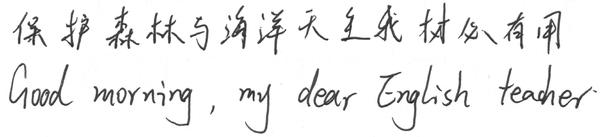 保护森林与海洋天生我材必有用
Good morning, my dear English teacher.